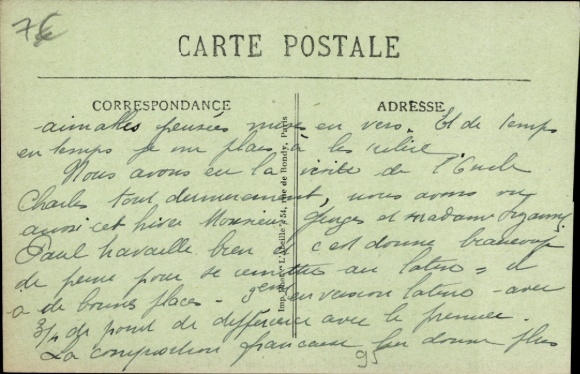 7€
CARTE POSTALE
CORRESPONDANCE
ADRESSE
Imp. phot. L'Abeille, 54, rue de Bondy, Paris
aimables pensées mises en vers. Et de temps
en temps je me plais à les relire
Nous avons eu la visite de l'Oncle
Charles tout dernièrement, nous avons vu
aussi cet hiver Monsieur Georges et Madame Suzanne
Paul travaille bien et s'est donné beaucoup
de peine pour se remettre au latin = il
a de bonnes places - 3em en version latine - avec
3/4 de point de différence avec le premier.
La composition française lui donne plus
95